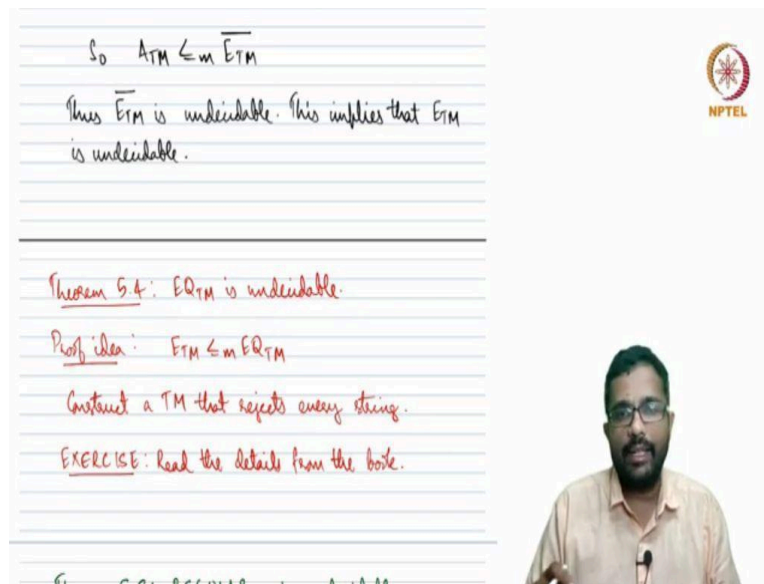 So A_TM ≤m \overline{E_TM}
Thus \overline{E}_TM is undecidable. This implies that E_TM
is undecidable.
NPTEL
Theorem 5.4: EQ_TM is undecidable.
Proof idea: E_TM ≤m EQ_TM
Construct a TM that rejects every string.
EXERCISE: Read the details from the book.